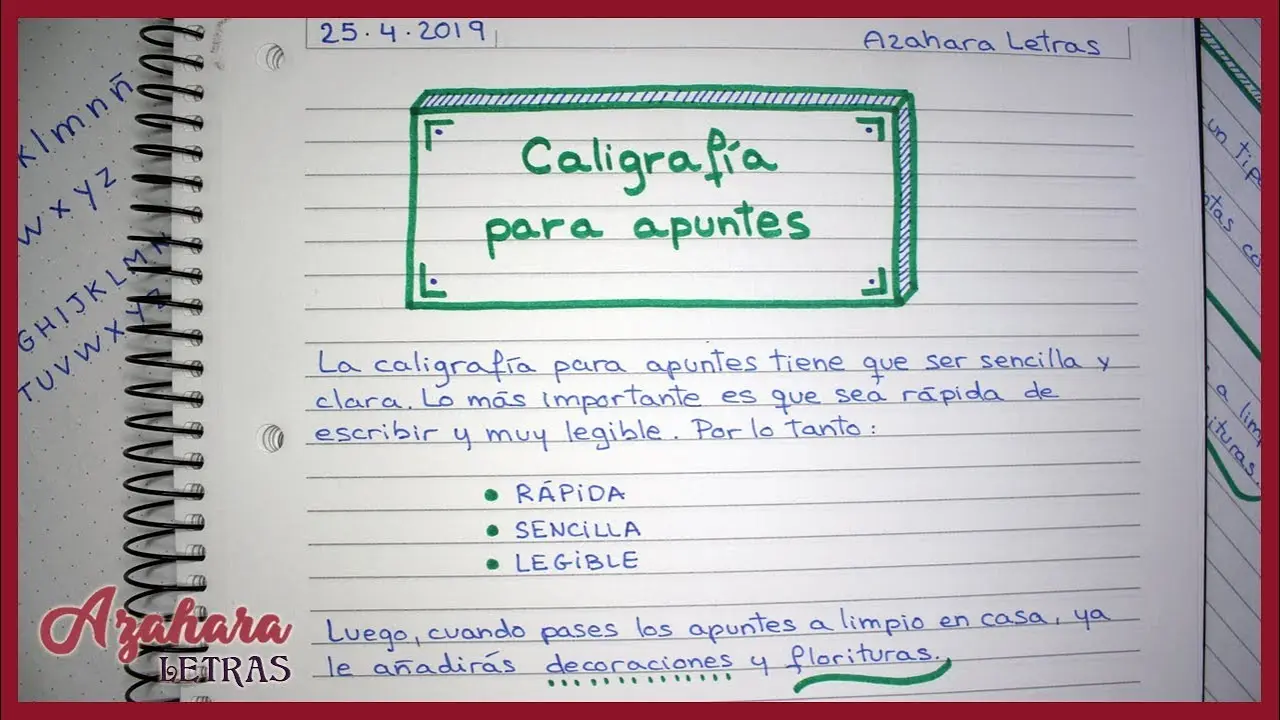 25.4.2019
Azahara Letras
Caligrafía
para apuntes
La caligrafía para apuntes tiene que ser sencilla y
clara. Lo más importante es que sea rápida de
escribir y muy legible. Por lo tanto:
• RÁPIDA
• SENCILLA
• LEGIBLE
Luego, cuando pases los apuntes a limpio en casa, ya
le añadirás decoraciones y florituras.
k l m n ñ
w x y z
G H I J K L M N
T U V W X Y Z
un tipo
a limp
Azahara
LETRAS